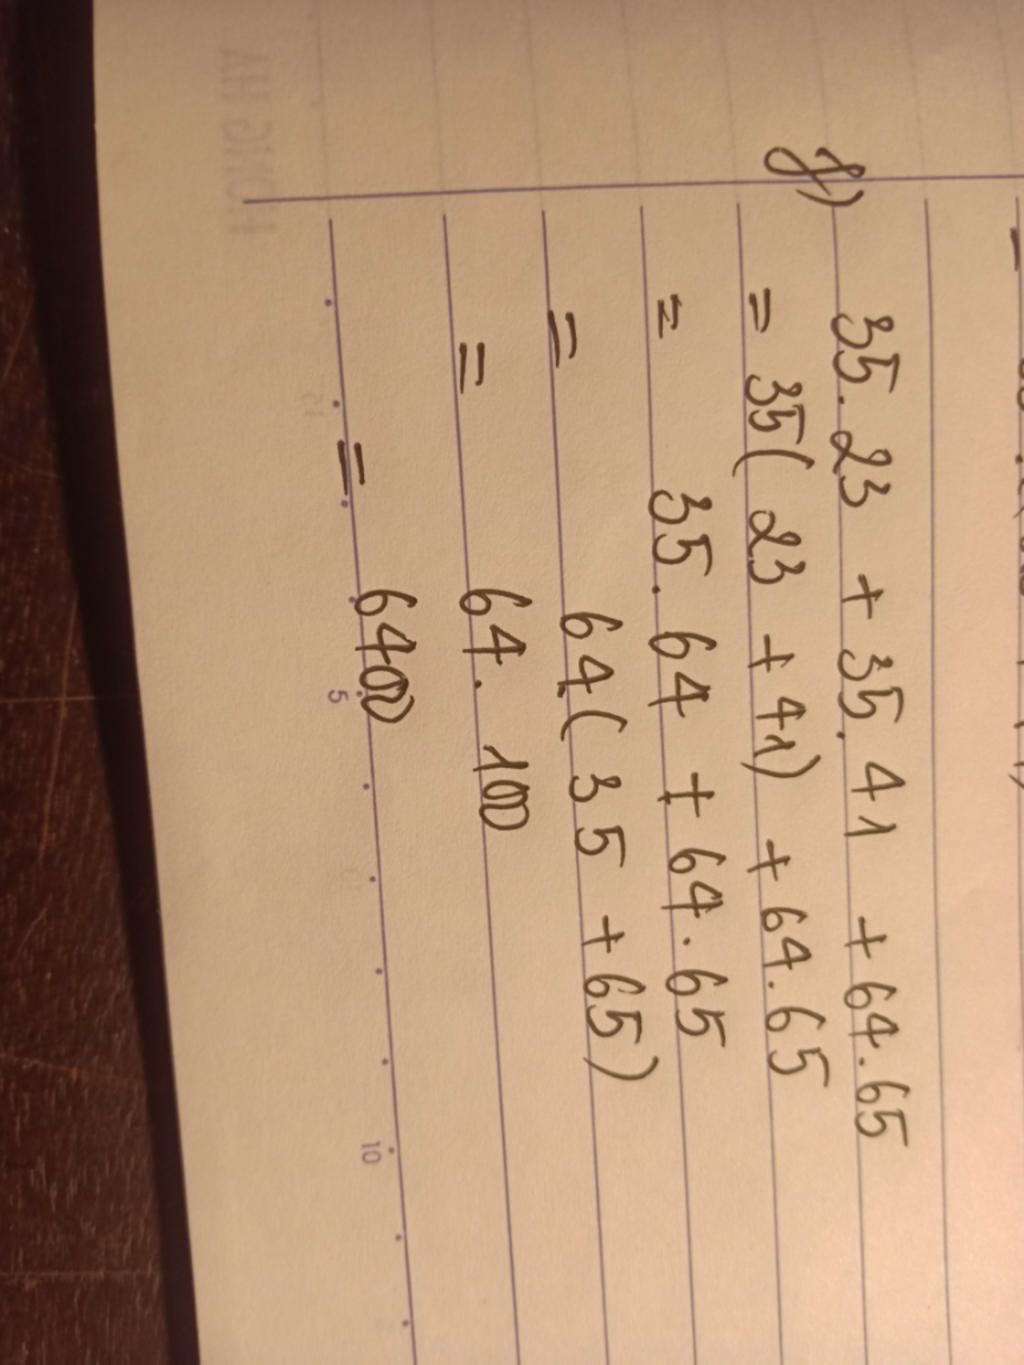 f) 35.23 + 35.41 + 64.65
= 35(23 + 41) + 64.65
= 35.64 + 64.65
= 64.(35 + 65)
= 64.100
= 6400
5 10
HỒNG HÀ